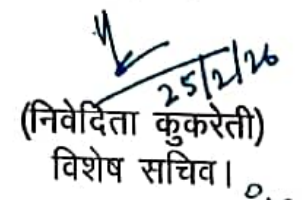 25/2/26
(निवेदिता कुकरेती)
विशेष सचिव।